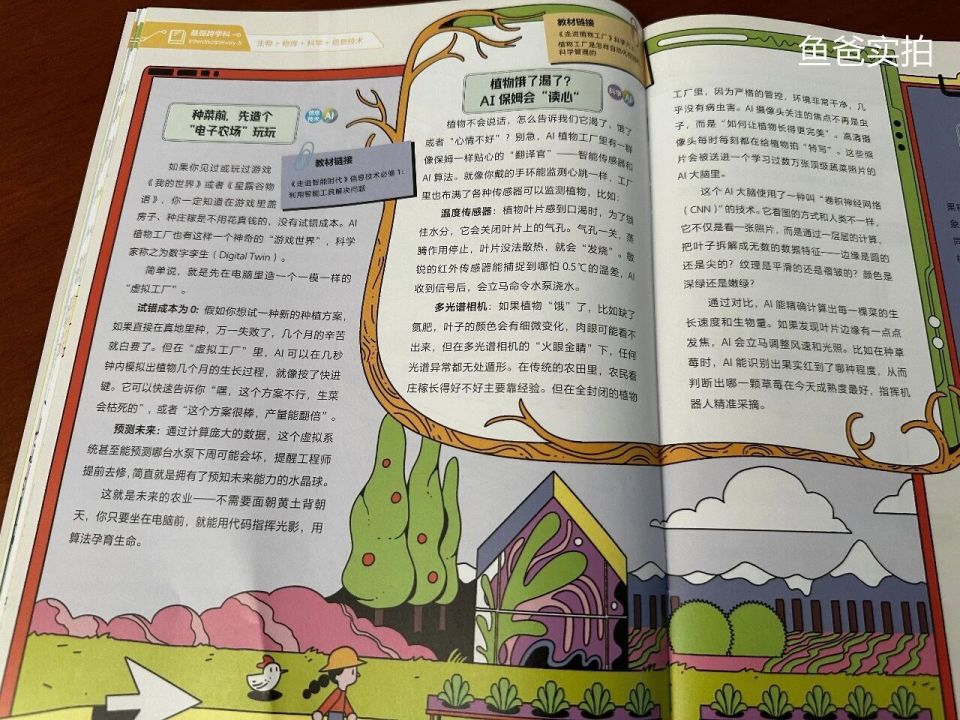 最强跨学科
Interdisciplinary
生物 + 物理 + 科学 + 信息技术
种菜前，先造个
“电子农场”玩玩
信息
技术
AI
教材链接
《走进智能时代》信息技术必修 1：
利用智能工具解决问题
如果你见过或玩过游戏
《我的世界》或者《星露谷物
语》，你一定知道在游戏里盖
房子、种庄稼是不用花真钱的、没有试错成本。AI
植物工厂也有这样一个神奇的“游戏世界”，科学
家称之为数字孪生（Digital Twin）。
简单说，就是先在电脑里造一个一模一样的
“虚拟工厂”。
试错成本为 0：假如你想试一种新的种植方案，
如果直接在真地里种，万一失败了，几个月的辛苦
就白费了。但在“虚拟工厂”里，AI 可以在几秒
钟内模拟出植物几个月的生长过程，就像按了快进
键。它可以快速告诉你“嘿，这个方案不行，生菜
会枯死的”，或者“这个方案很棒，产量能翻倍”。
预测未来：通过计算庞大的数据，这个虚拟系
统甚至能预测哪台水泵下周可能会坏，提醒工程师
提前去修，简直就是拥有了预知未来能力的水晶球。
这就是未来的农业——不需要面朝黄土背朝
天，你只要坐在电脑前，就能用代码指挥光影，用
算法孕育生命。
教材链接
《走进植物工厂》科学
植物工厂是怎样自动化
科学管理的
植物饿了渴了？
AI 保姆会“读心”
科学
AI
植物不会说话，怎么告诉我们它渴了，饿了
或者“心情不好”？别急，AI 植物工厂里有一群
像保姆一样贴心的“翻译官”——智能传感器和
AI 算法。就像你戴的手环能监测心跳一样，工厂
里也布满了各种传感器可以监测植物，比如：
温度传感器：植物叶片感到口渴时，为了锁
住水分，它会关闭叶片上的气孔。气孔一关，蒸
腾作用停止，叶片没法散热，就会“发烧”。敏
锐的红外传感器能捕捉到哪怕 0.5℃的温差，AI
收到信号后，会立马命令水泵浇水。
多光谱相机：如果植物“饿”了，比如缺了
氮肥，叶子的颜色会有细微变化，肉眼可能看不
出来，但在多光谱相机的“火眼金睛”下，任何
光谱异常都无处遁形。在传统的农田里，农民看
庄稼长得好不好主要靠经验。但在全封闭的植物
鱼爸实拍
工厂里，因为严格的管控，环境非常干净，几
乎没有病虫害。AI 摄像头关注的焦点不再是虫
子，而是“如何让植物长得更完美”。高清摄
像头每时每刻都在给植物拍“特写”。这些照
片会被送进一个学习过数万张顶级蔬菜照片的
AI 大脑里。
这个 AI 大脑使用了一种叫“卷积神经网络
（CNN）”的技术。它看图的方式和人类不一样，
它不仅是看一张照片，而是通过一层层的计算，
把叶子拆解成无数的数据特征——边缘是圆的
还是尖的？纹理是平滑的还是褶皱的？颜色是
深绿还是嫩绿？
通过对比，AI 能精确计算出每一棵菜的生
长速度和生物量。如果发现叶片边缘有一点点
发焦，AI 会立马调整风速和光照。比如在种草
莓时，AI 能识别出果实红到了哪种程度，从而
判断出哪一颗草莓在今天成熟度最好，指挥机
器人精准采摘。